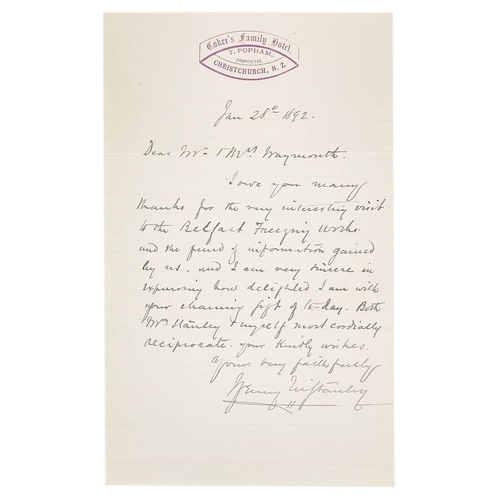 Coker's Family Hotel.
T. POPHAM,
PROPRIETOR.
CHRISTCHURCH, N. Z.
Jan 28th 1892.
Dear Mr & Mrs Waymouth.
I owe you many
thanks for the very interesting visit
to the Belfast Freezing Works
and the fund of information gained
by us. and I am very sincere in
expressing how delighted I am with
your charming gift of to-day. Both
Mrs Stanley & myself most cordially
reciprocate your kindly wishes.
Yours very faithfully
Henry M Stanley